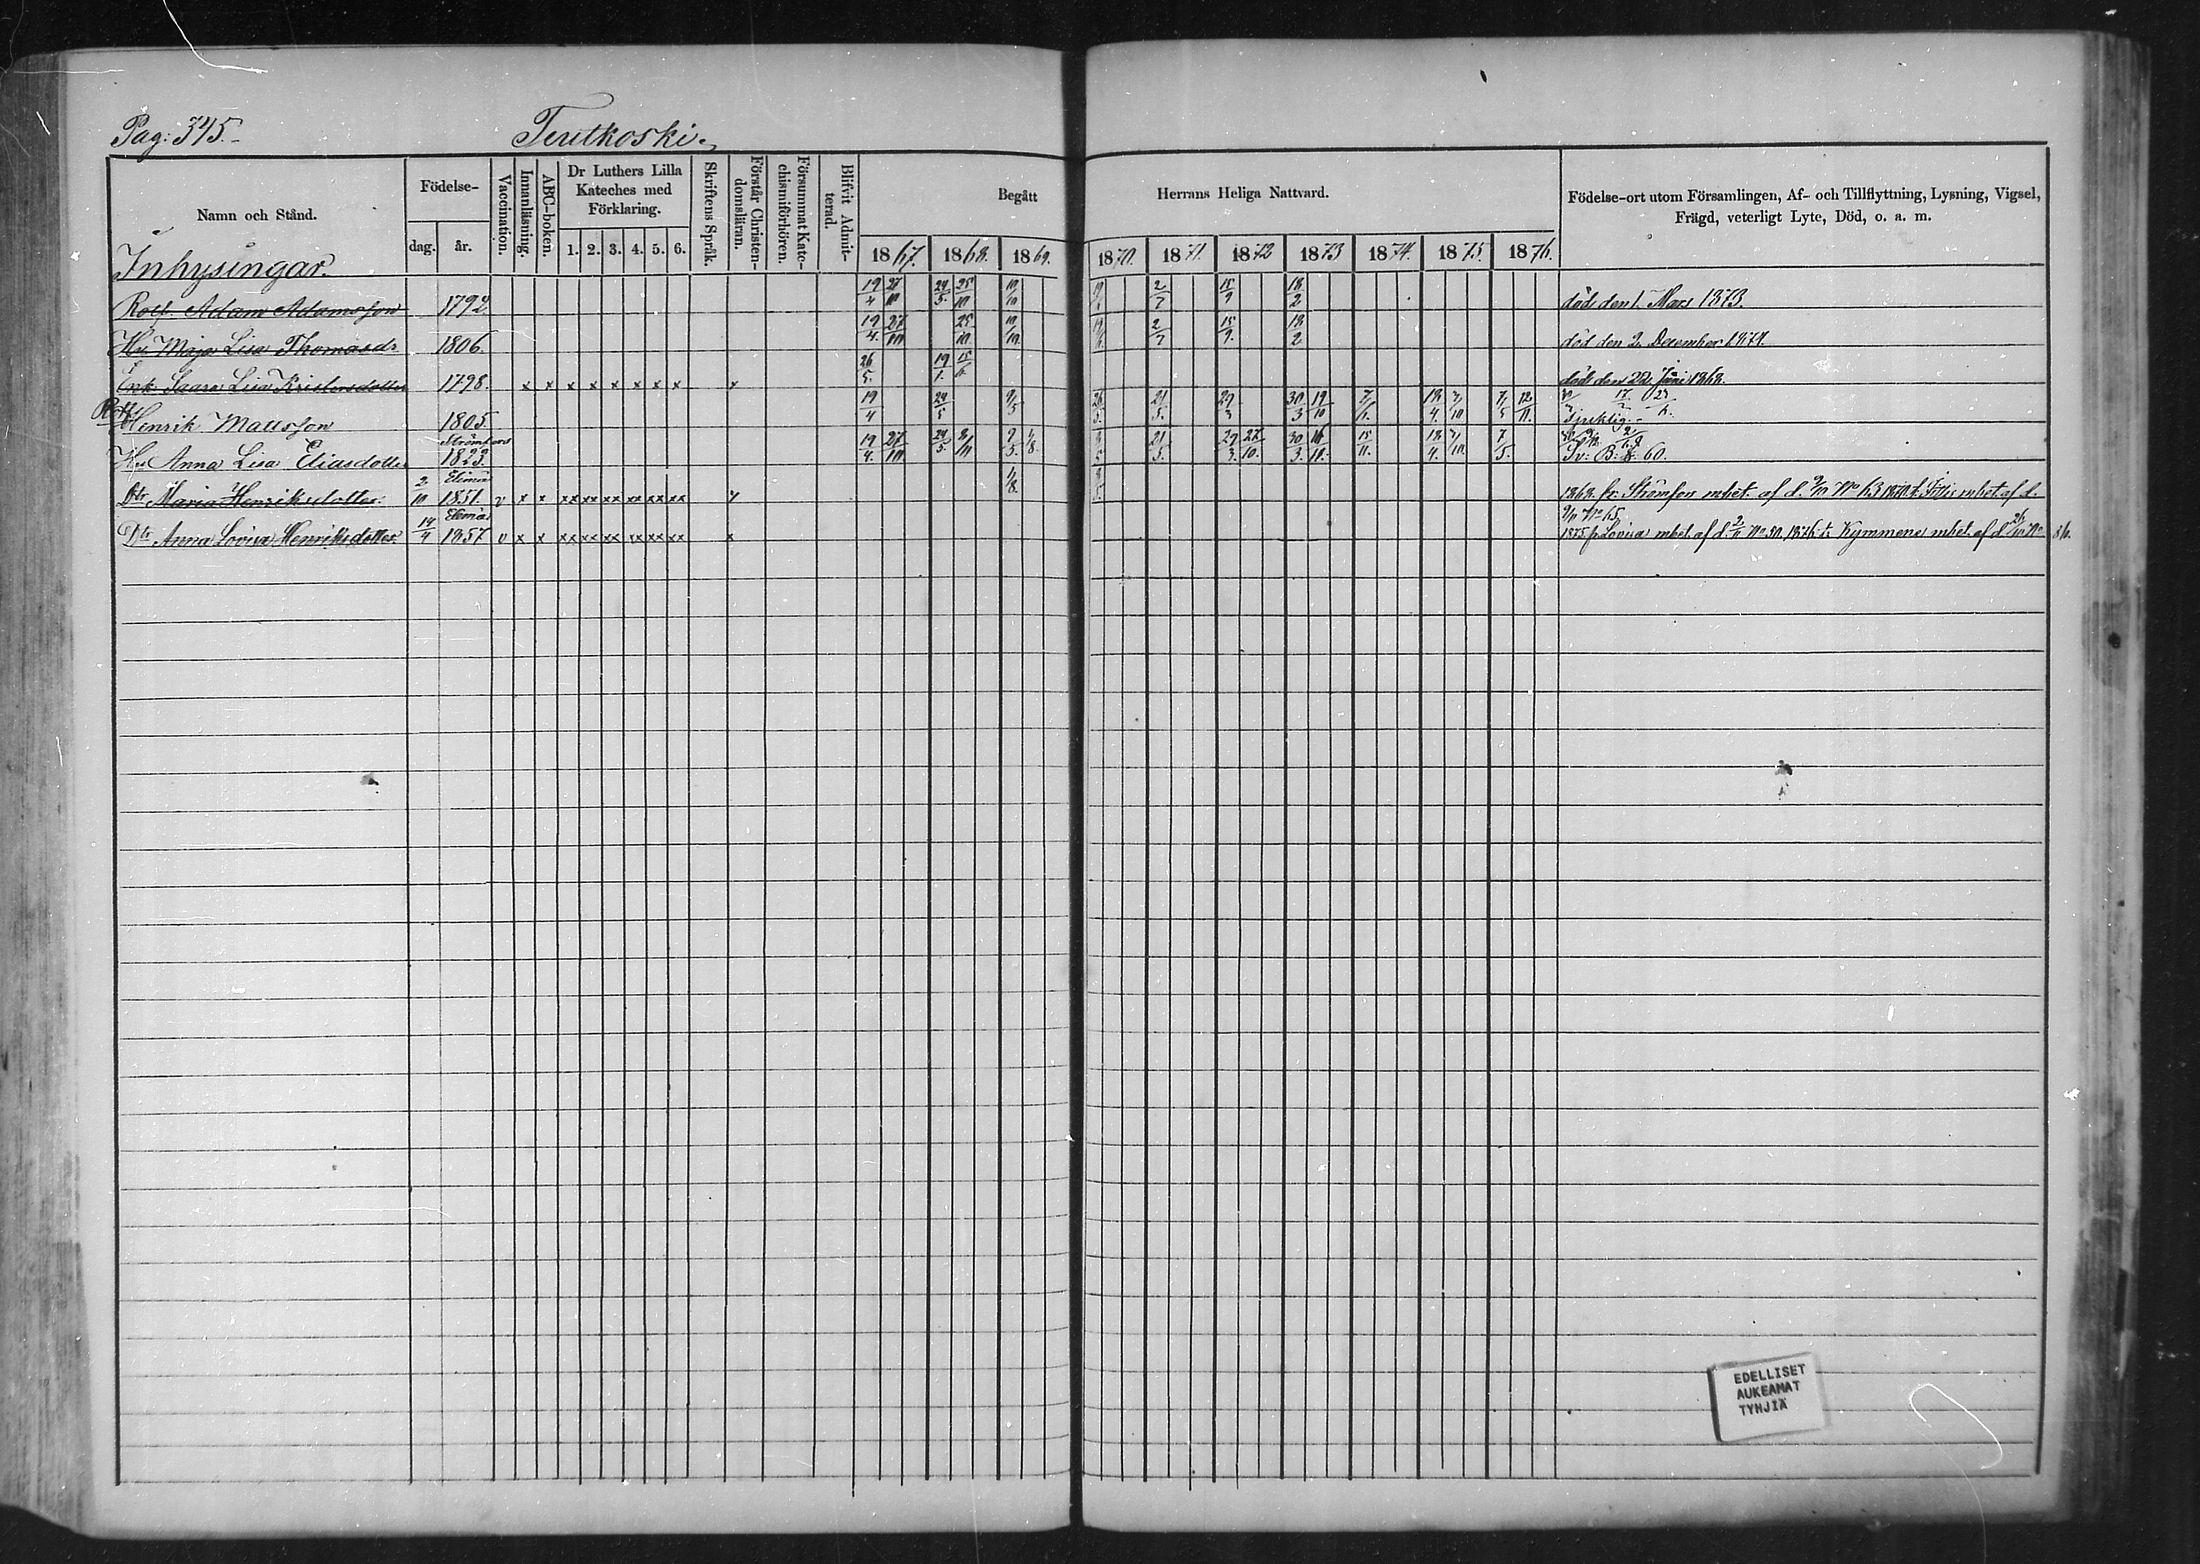 Pag: 345.
Teutkoski.
Namn och Stånd.
Födelse-
dag. år.
Vaccination.
Innanläsning.
ABC-boken.
Dr Luthers Lilla
Kateches med
Förklaring.
1. 2. 3. 4. 5. 6.
Skriftens Språk.
Förstår Christen-
domsläran.
Försummat Kate-
chismiförhören.
Blifvit Admit-
terad.
Begått Herrans Heliga Nattvard.
1867. 1868. 1869. 1870. 1871. 1872 1873 1874. 1875. 1876.
Födelse-ort utom Församlingen, Af- och Tillflyttning, Lysning, Vigsel,
Frägd, veterligt Lyte, Död, o. a. m.
Inhysingar.
Adam Adamsson 1792 19/4 27/10 24/5 25/10 10/10 2/7 15/9 18/2 död den 1. Mars 1873.
Hu Maja Lisa Thomasdr 1806. 19/4 27/10 25/10 10/10 2/7 15/9 18/2 död den 2. December 1874.
Enk. Saara Lisa 1798. x x x x x x x x x 26/5. 19/1. 15/6. död den 22 Juni 1868.
Henrik Mattsson 1805. 19/4 24/5 9/5 26/5. 21/5. 29/3 30/3 19/10 7/5 12/11. Sjuklig.
Strömfors
Hu Anna Lisa Eliasdotter 1823. 19/4. 27/10 24/5. 9/5. 21/5. 29/3. 27/10. 30/3. 15/11. 7/5. Sv: B: 8: 60.
Elimä
Dtr Maria Henriksdotter. 2/10 1851. v x x xx xx xx xx xx xx 1/8. 1868 fr. Strömfors mbet. af d. 9/10 No 63
Elimä
Dtr Anna Lovisa Henriksdotter. 14/4 1857 v x x xx xx xx xx xx xx x 1875 fr Lovisa mbet. af d. No 50. 1876 t. Kymmene mbet. af d
EDELLISET
AUKEAMAT
TYHJIÄ